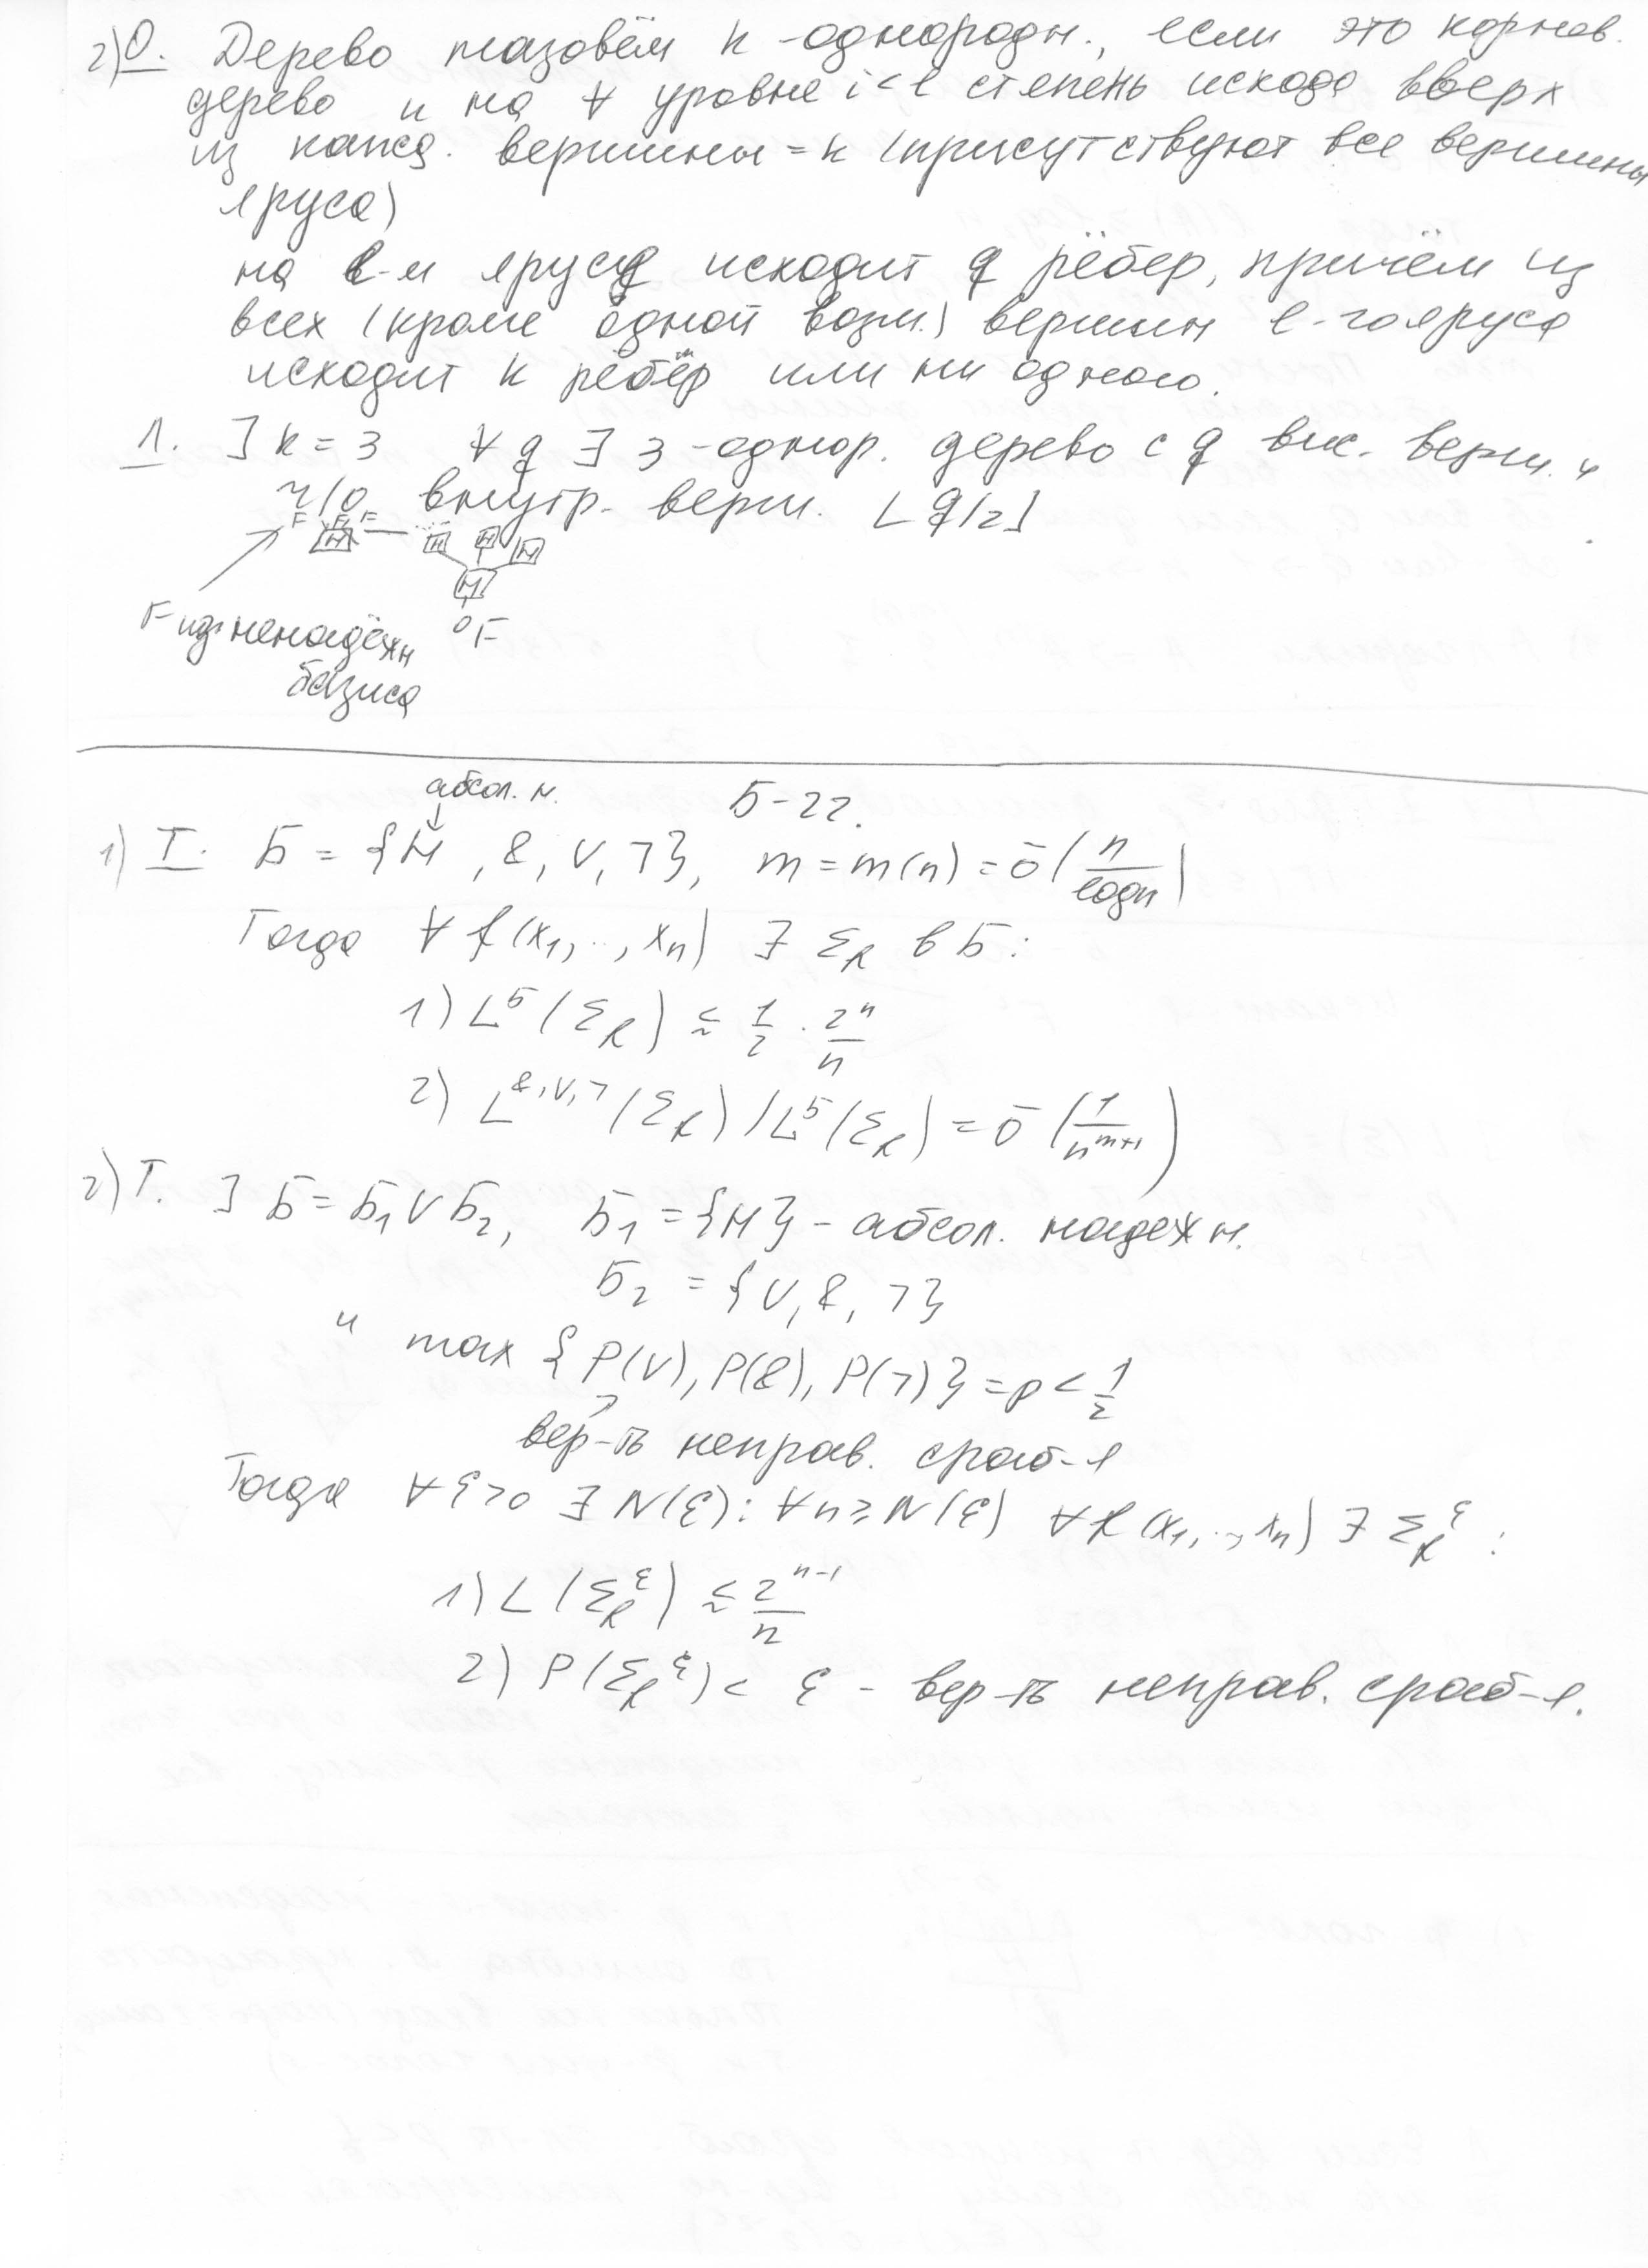 2) О. Дерево назовём k-однородн., если это корнев.
дерево и на ∀ уровне i<l степень исхода вверх
из кажд. вершины = k (присутствуют все вершины
яруса)
на l-м ярусе исходит q рёбер, причём из
всех (кроме одной возм.) вершин l-го яруса
исходит k рёбер или ни одного.
Л. ∃ k = 3 ∀ q ∃ 3-однор. дерево с q вис. верш. и
ч/о внутр. верш. ⌊q/2⌋
F F F
М М М М
М
F из ненадёжн F
базиса
абсол. н.
Б-22.
1) Т. Б = {М, &, ∨, ¬}, m = m(n) = ō(n/log n)
Тогда ∀ f(x₁, .., xₙ) ∃ Σ_f в Б:
1) L^Б(Σ_f) ≲ 1/2 · 2ⁿ/n
2) L^{&,∨,¬}(Σ_f)/L^Б(Σ_f) = ō(1/n^{m+1})
2) Т. ∃ Б = Б₁ ∨ Б₂, Б₁ = {М} - абсол. надежн.
Б₂ = {∨, &, ¬}
и max {P(∨), P(&), P(¬)} = p < 1/2
вер-ть неправ. сраб-я
Тогда ∀ε>0 ∃ N(ε): ∀n≥N(ε) ∀f(x₁, .., xₙ) ∃ Σ_f^ε :
1) L(Σ_f^ε) ≲ 2^{n-1}/n
2) P(Σ_f^ε) < ε - вер-ть неправ. сраб-я.